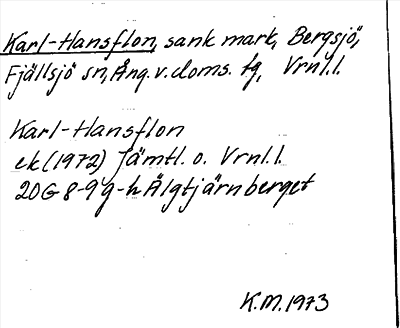 Karl-Hansflon, sank mark, Bergsjö,
Fjällsjö sn, Ång. v. doms. fg, Vrnl.l.
Karl-Hansflon
ek (1972) Jämtl. o. Vrnl.l.
20G 8-9 g-h Älgtjärnberget
K.M. 1973